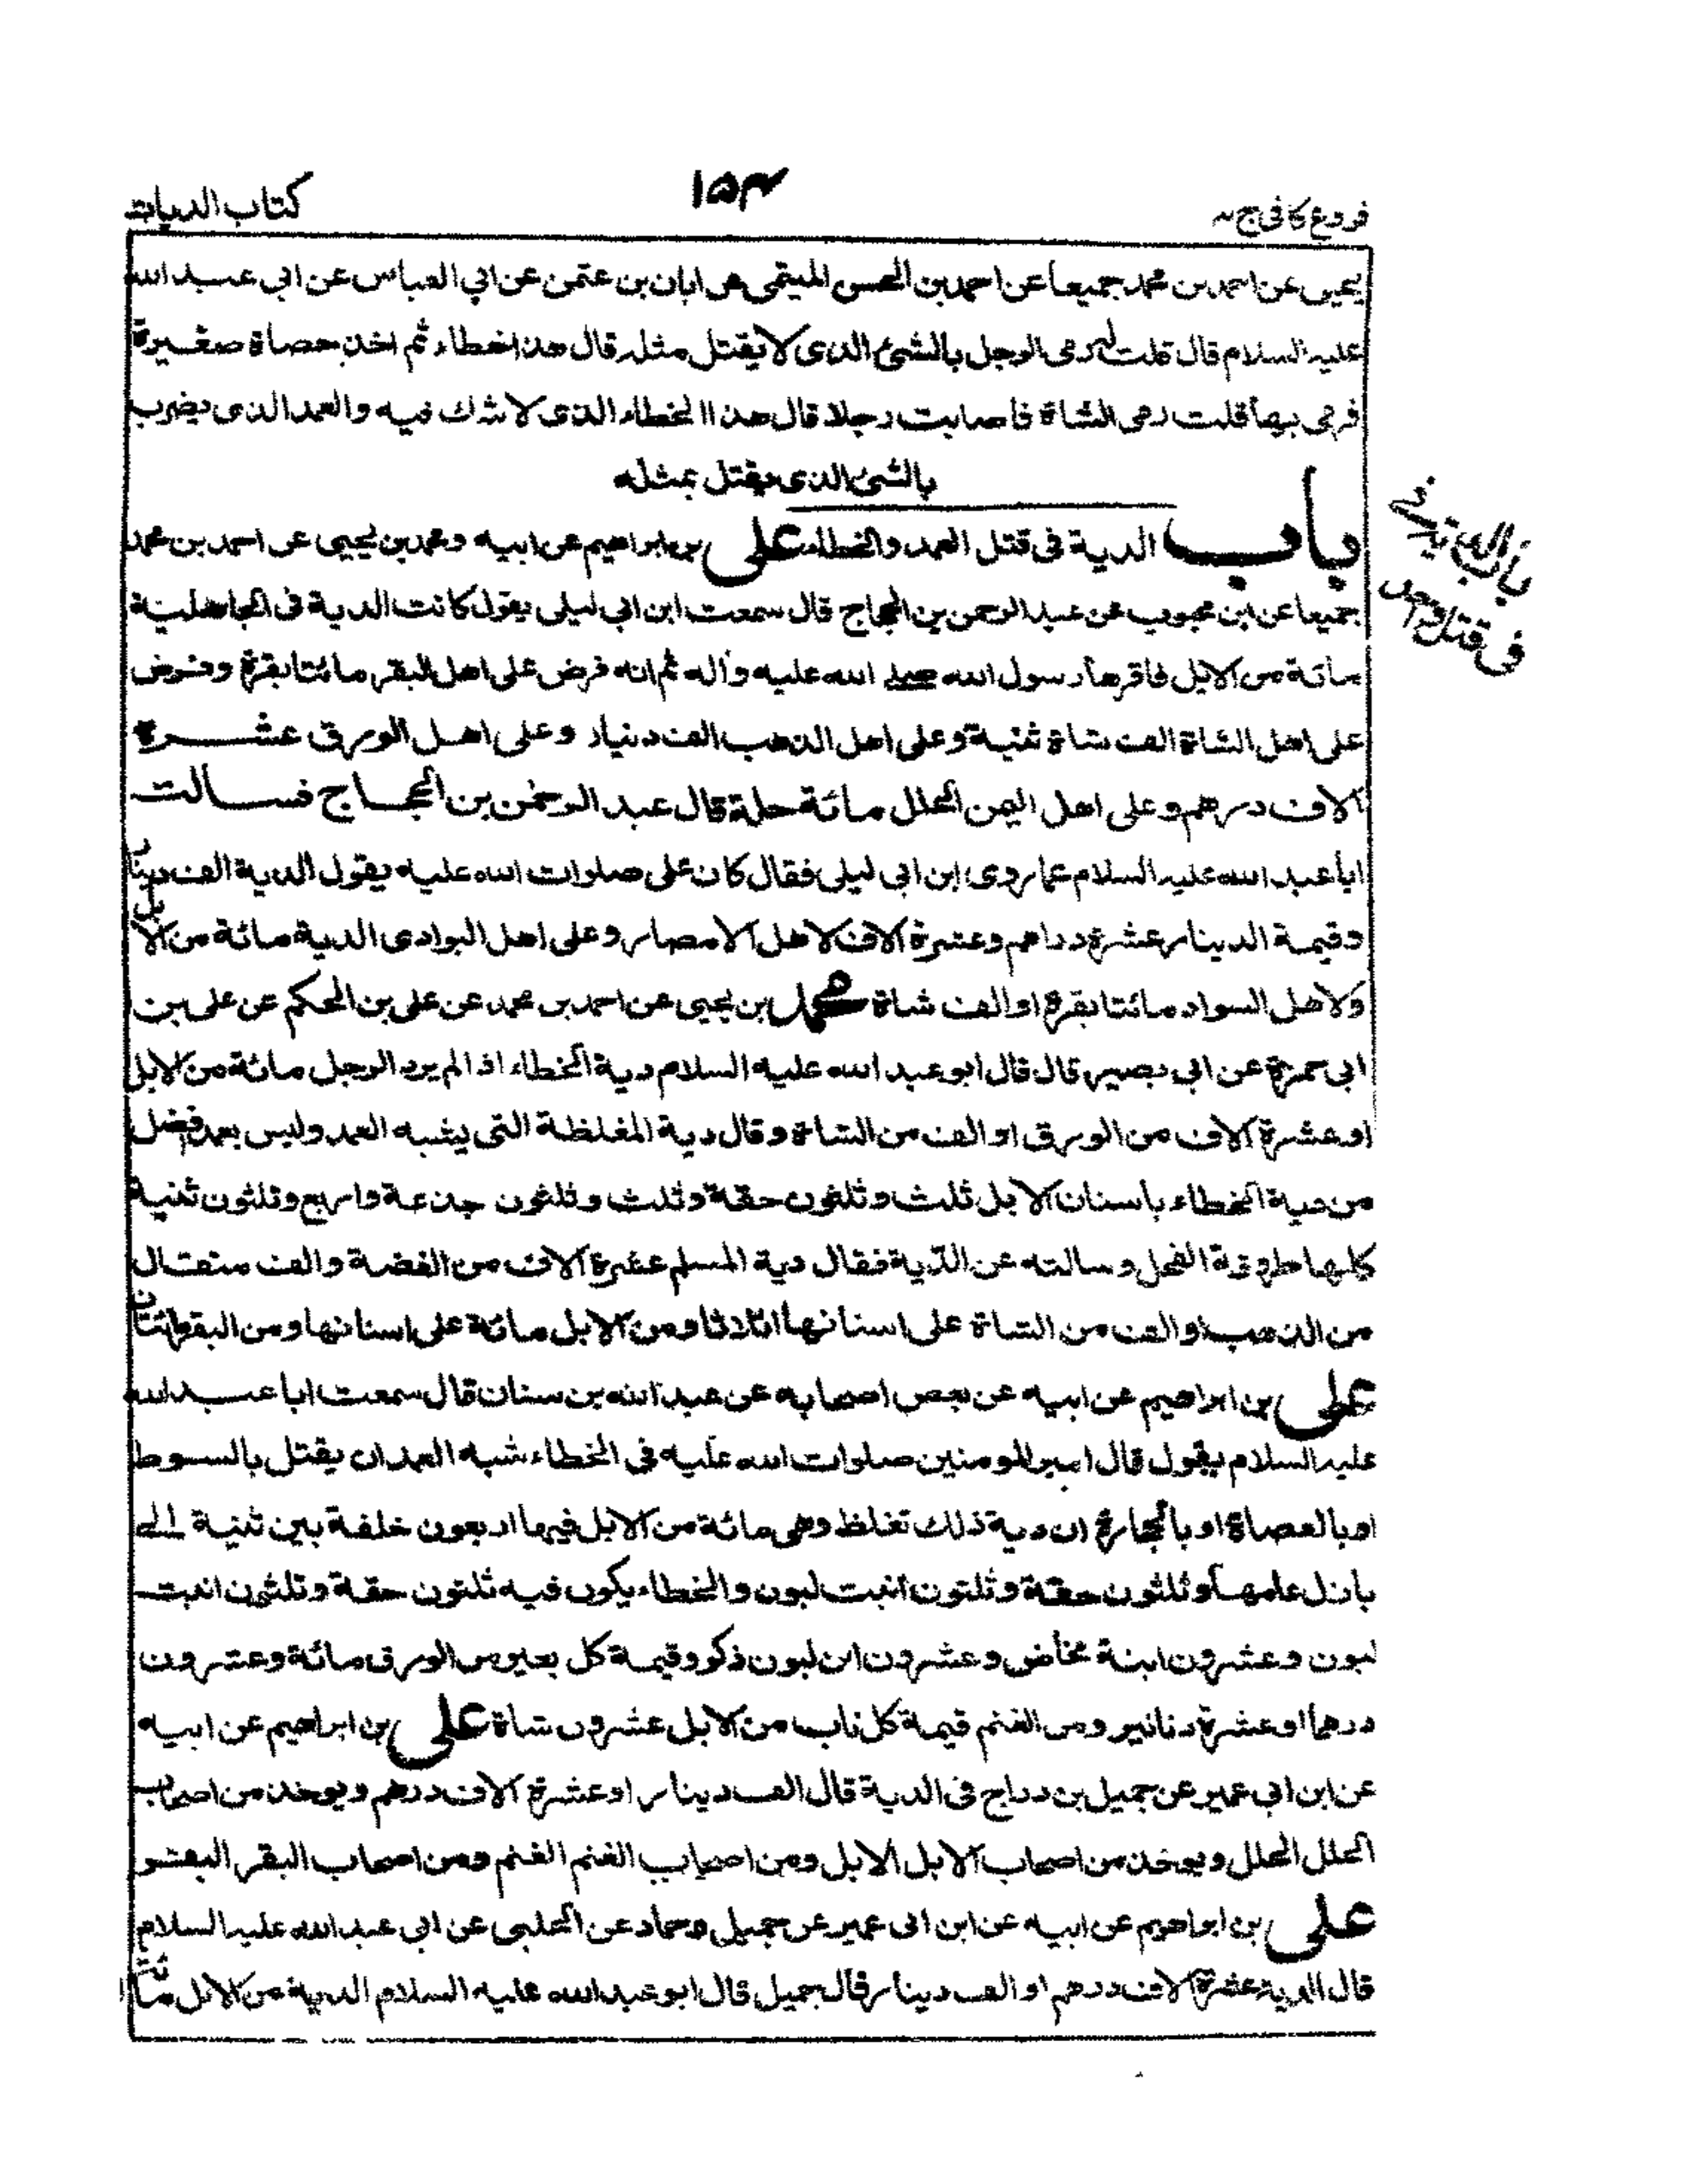 فروع کافی ج
۱۵۴
کتاب الدیات
یحیی عن احمد بن محمد جمیعا عن احمد بن الحسن المیثمی عن ابان بن عثمن عن ابی العباس عن ابی عبد الله
علیه السلام قال قلت له رمی الرجل بالشئ الذی لا یقتل مثله قال هذا خطاء ثم اخذ حصاة صغیرة
فرمی بها قلت رمی الشاة فاصابت رجلا قال هذا الخطاء الذی لا شك فیه والعمد الذی یضرب
بالشئ الذی یقتل بمثله
باب الدیة فی قتل العمد والخطاء علی بن ابراهیم عن ابیه ومحمد بن یحیی عن احمد بن محمد
جمیعا عن ابن محبوب عن عبد الرحمن بن الحجاج قال سمعت ابن ابی لیلی یقول کانت الدیة فی الجاهلیة
مائة من الابل فاقرها رسول الله صلی الله علیه واله ثم انه فرض علی اهل البقر مائتا بقرة وفرض
علی اهل الشاة الف شاة ثنیة وعلی اهل الذهب الف دینار وعلی اهل الورق عشرة
آلاف درهم وعلی اهل الیمن الحلل مائة حلة قال عبد الرحمن بن الحجاج فسالت
ابا عبد الله علیه السلام عما روی ابن ابی لیلی فقال کان علی صلوات الله علیه یقول الدیة الف دینار
وقیمة الدینار عشرة دراهم وعشرة الاف لاهل الامصار وعلی اهل البوادی الدیة مائة من الابل
ولاهل السواد مائتا بقرة او الف شاة محمد بن یحیی عن احمد بن محمد عن علی بن الحکم عن علی بن
ابی حمزة عن ابی بصیر قال قال ابو عبد الله علیه السلام دیة الخطاء اذا لم یرد الرجل مائة من الابل
او عشرة آلاف من الورق او الف من الشاة وقال دیة المغلظة التی یشبه العمد ولیس بعمد افضل
من دیة الخطاء باسنان الابل ثلث وثلثون حقة وثلث وثلثون جذعة واربع وثلثون ثنیة
کلها طروقة الفحل وسالته عن الدّیة فقال دیة المسلم عشرة آلاف من الفضة والف مثقال
من الذهب او الف من الشاة علی اسنانها اثلاثا ومن الابل مائة علی اسنانها ومن البقر مائتان
علی بن ابراهیم عن ابیه عن بعض اصحابه عن عبد الله بن سنان قال سمعت ابا عبد الله
علیه السلام یقول قال امیر المومنین صلوات الله علیه فی الخطاء شبه العمد ان یقتل بالسوط
او بالعصاة او بالحجارة ان دیة ذلك تغلظ وهی مائة من الابل فیها اربعون خلفة بین ثنیة الی
بازل عامها وثلثون حقة وثلثون انبت لبون والخطاء یکون فیه ثلثون حقة وثلثون انبت
لبون وعشرون ابنة مخاض وعشرون ابن لبون ذکر وقیمة کل بعیر من الورق مائة وعشرون
درهما او عشرة دنانیر ومن الغنم قیمة کل ناب من الابل عشرون شاة علی بن ابراهیم عن ابیه
عن ابن ابی عمیر عن جمیل بن دراج فی الدیة قال الف دینار او عشرة آلاف درهم ویوخذ من اصحاب
الحلل الحلل ویوخذ من اصحاب الابل الابل ومن اصحاب الغنم الغنم ومن اصحاب البقر البقر
علی بن ابراهیم عن ابیه عن ابن ابی عمیر عن جمیل وحماد عن الحلبی عن ابی عبد الله علیه السلام
قال الدیة عشرة آلاف درهم او الف دینار قال جمیل قال ابو عبد الله علیه السلام الدیة من الابل مائة
باب الدیة فی
فی قتل